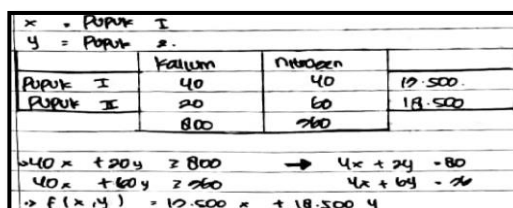 x = Pupuk I
y = Pupuk 2.
Kalium Nitrogen
Pupuk I 40 40 12.500.
Pupuk II 20 60 18.500
800 360
→ 40x + 20y ≥ 800 → 4x + 2y = 80
40x + 60y ≥ 360 4x + 6y = 36
→ f(x,y) = 12.500 x + 18.500 y